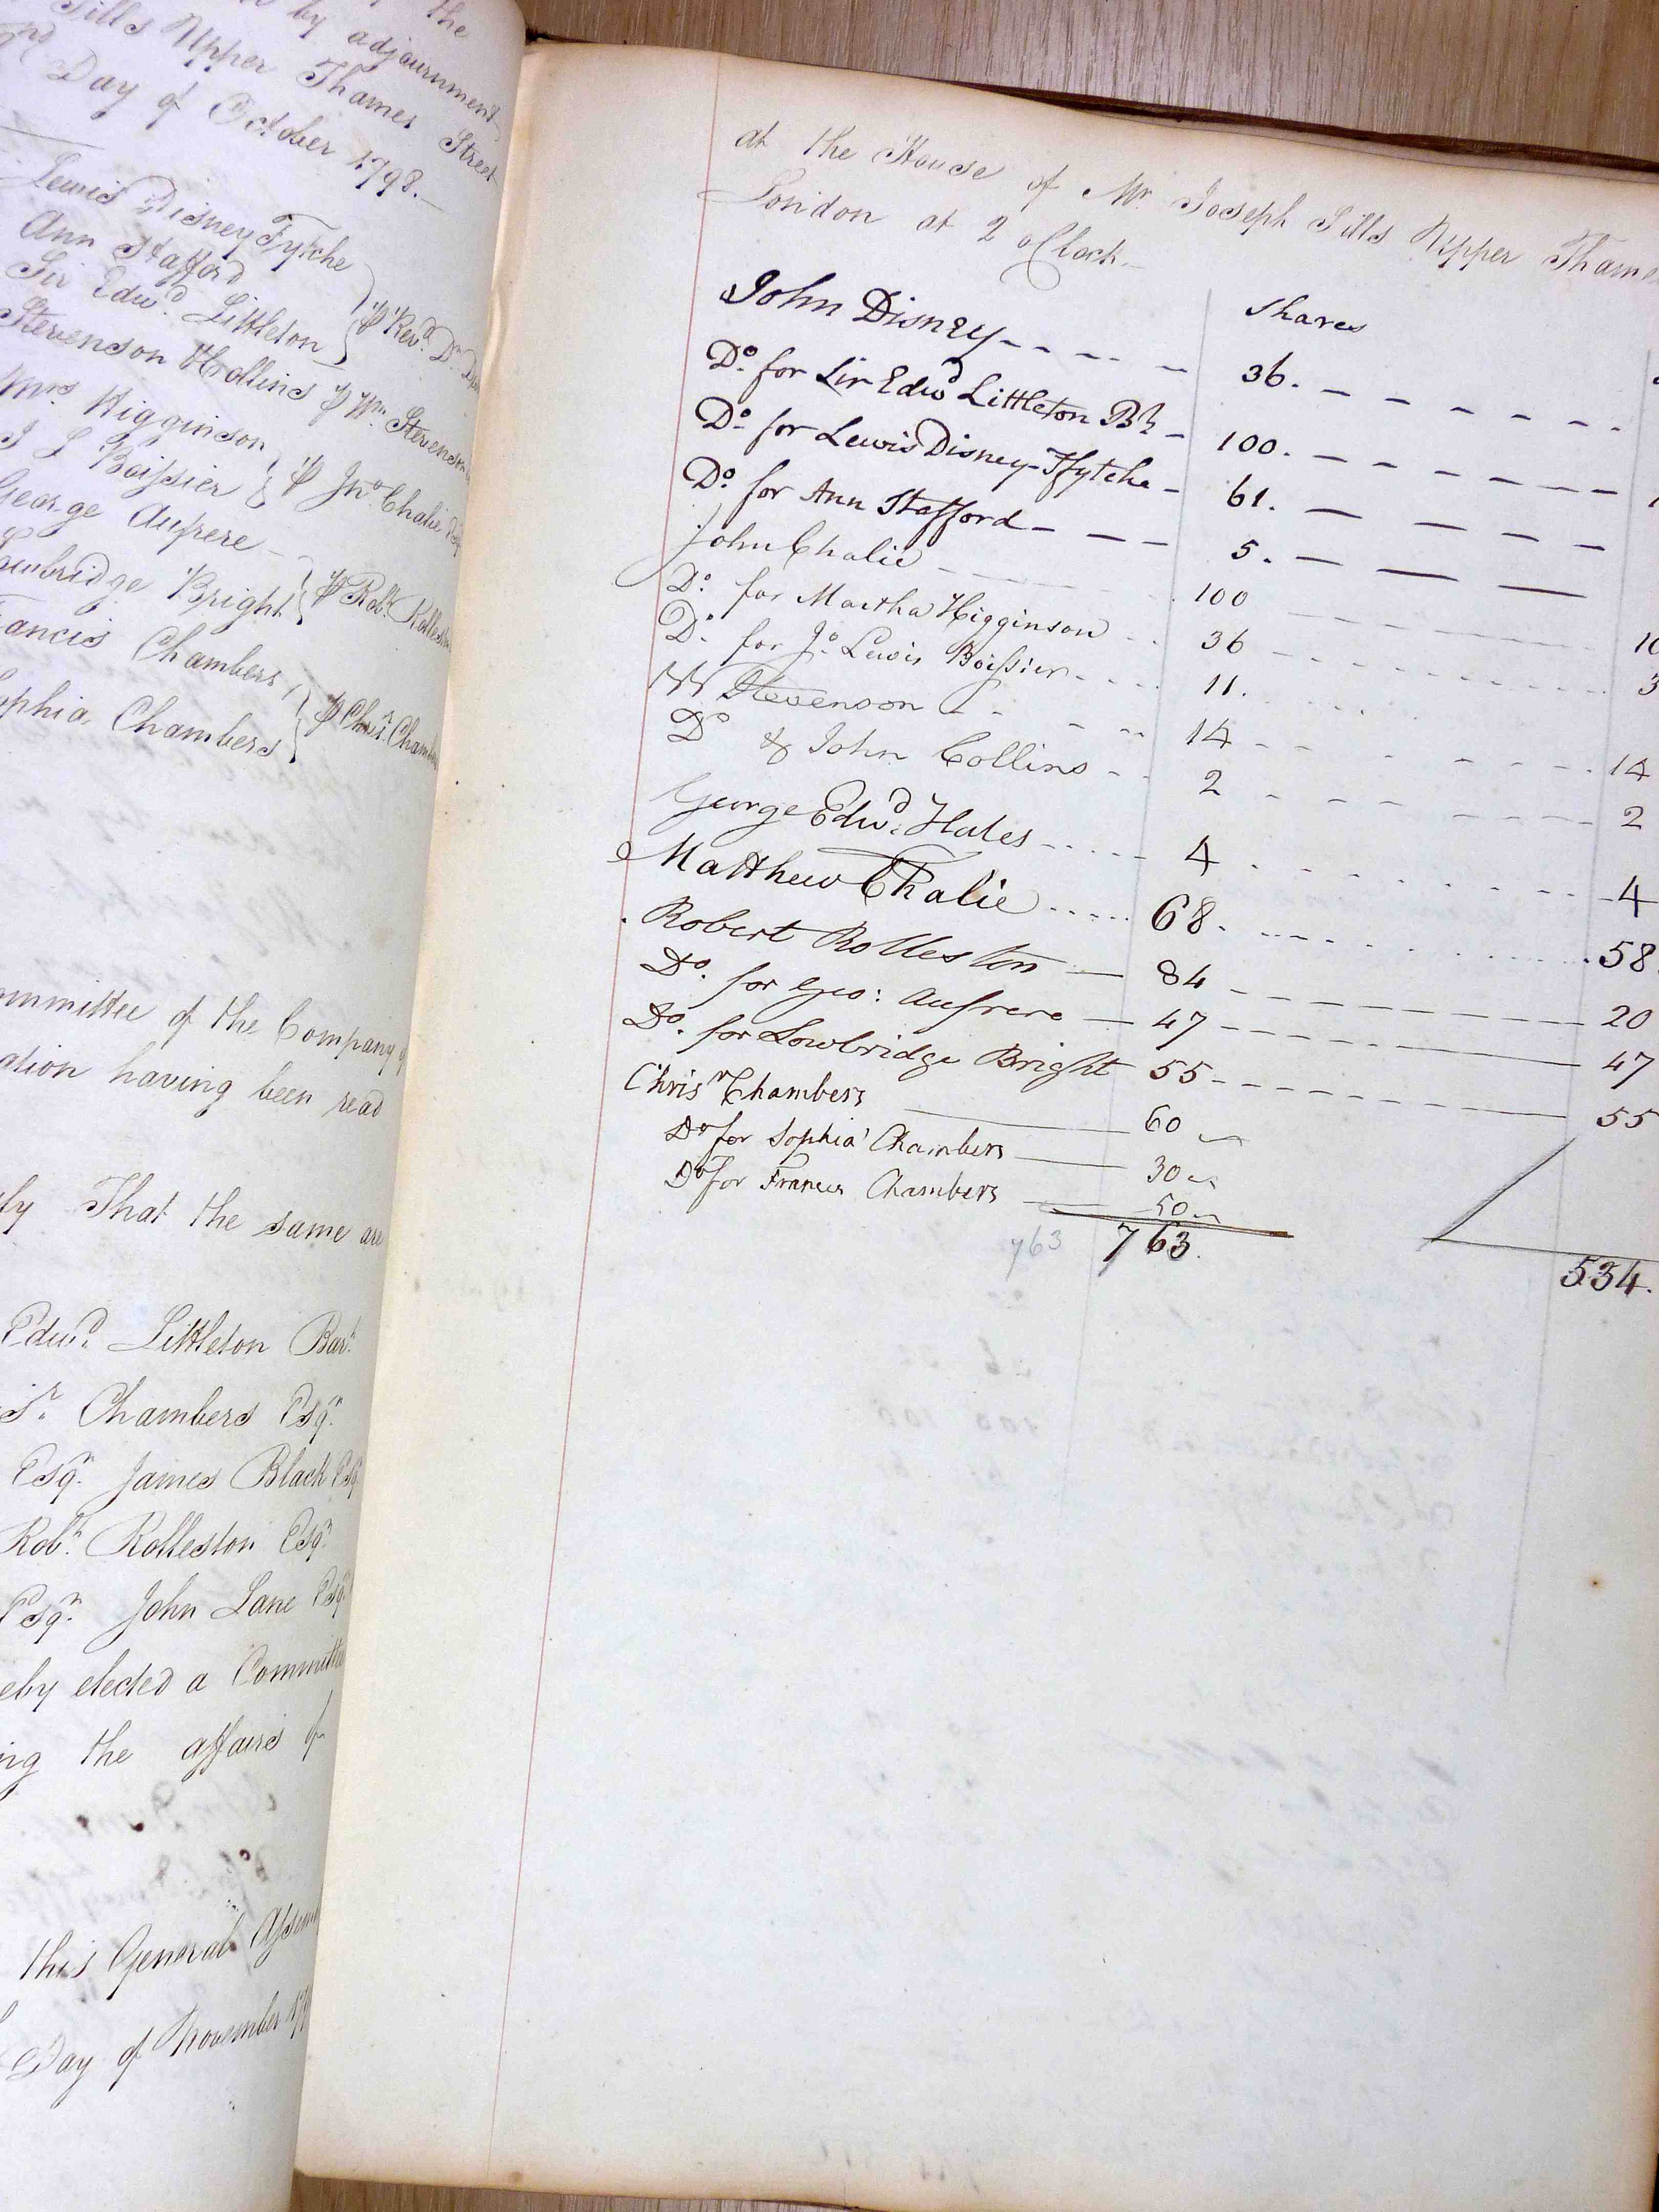 by adjournment
the
Sills Upper Thames Street
Day of October 1798.
Lewis Disney Fytche
Ann Stafford
Sir Edwd. Littleton
⅌ Revd. Dr.
Stevenson & Collins ⅌ Wm. Stevenson
Mrs Higginson
J L Boissier
⅌ Jno. Chalie
George Aufrere
Lowbridge Bright
⅌ Robt. Rolleston
Francis Chambers
Sophia Chambers
⅌ Chrisr. Chambers
Committee of the Company of
ation having been read
That the same are
Edwd. Littleton Bart.
Chambers Esqr.
Esqr. James Black Esqr.
Robt. Rolleston Esqr.
Esqr. John Lane Esqr.
eby elected a Committee
ing the affairs of
this General Assem
Day of November 179
at the House of Mr. Joseph Sills Upper Thame
London at 2 oClock
Shares
John Disney 36.
Do. for Sir Edwd Littleton Bt. 100.
Do. for Lewis Disney-Ffytche 61.
Do. for Ann Stafford 5.
John Chalie 100 10
Do. for Martha Higginson 36 3
Do. for Jo. Lewis Boissier 11.
W Stevenson 14 14
Do & John Collins 2 2
George Edwd. Hales 4 4
Matthew Chalie 68. 58.
Robert Rolleston 84 20
Do. for Geo: Aufrere 47 47
Do. for Lowbridge Bright 55 55
Chrisr Chambers 60
Do for Sophia Chambers 30
Do for Francis Chambers 50
763 763. 534.